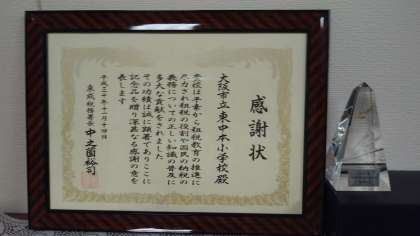 感謝状
大阪市立東中本小学校殿
貴校は平素から租税教育の推進に
尽力され租税の役割や国民の納税の
義務についての正しい知識の普及に
多大な貢献をされました
その功績は誠に顕著でありここに
記念品を贈り深甚なる感謝の意を
表します
平成二十年十一月十四日
東成税務署長 中之薗裕司